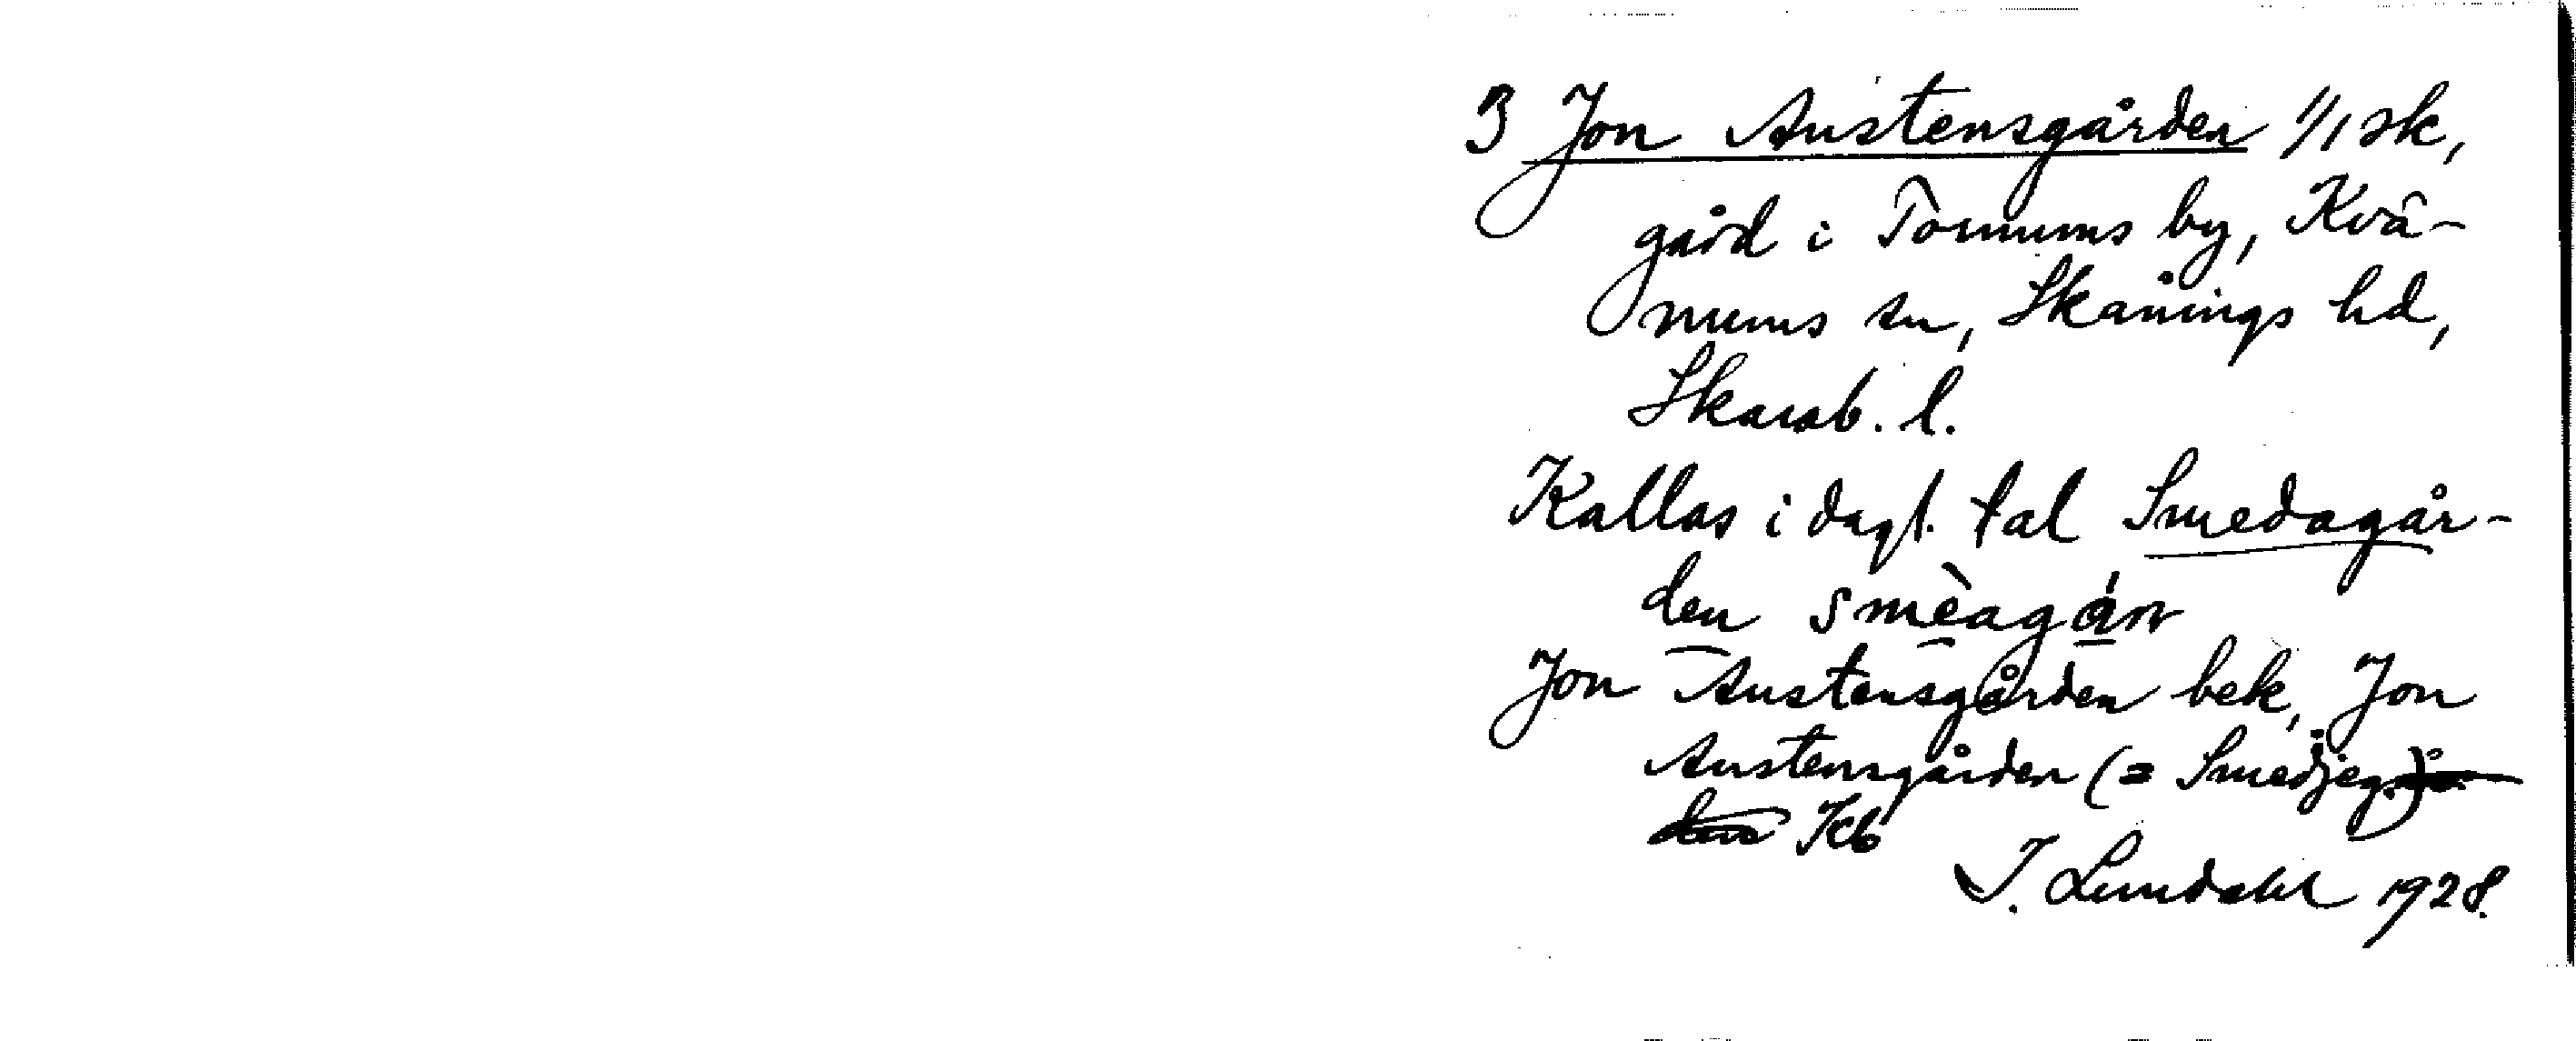 3 Jon Austensgården 1/1 sk,
gård i Tormums by, Kvä-
nums sn, Skånings hd,
Skarab. l.
Kallas i dagl. tal Smedagår-
den smèagán
Jon Austensgården bek, Jon
Austensgården (= Smedjeg.)
Kb
I. Lundahl 1928.